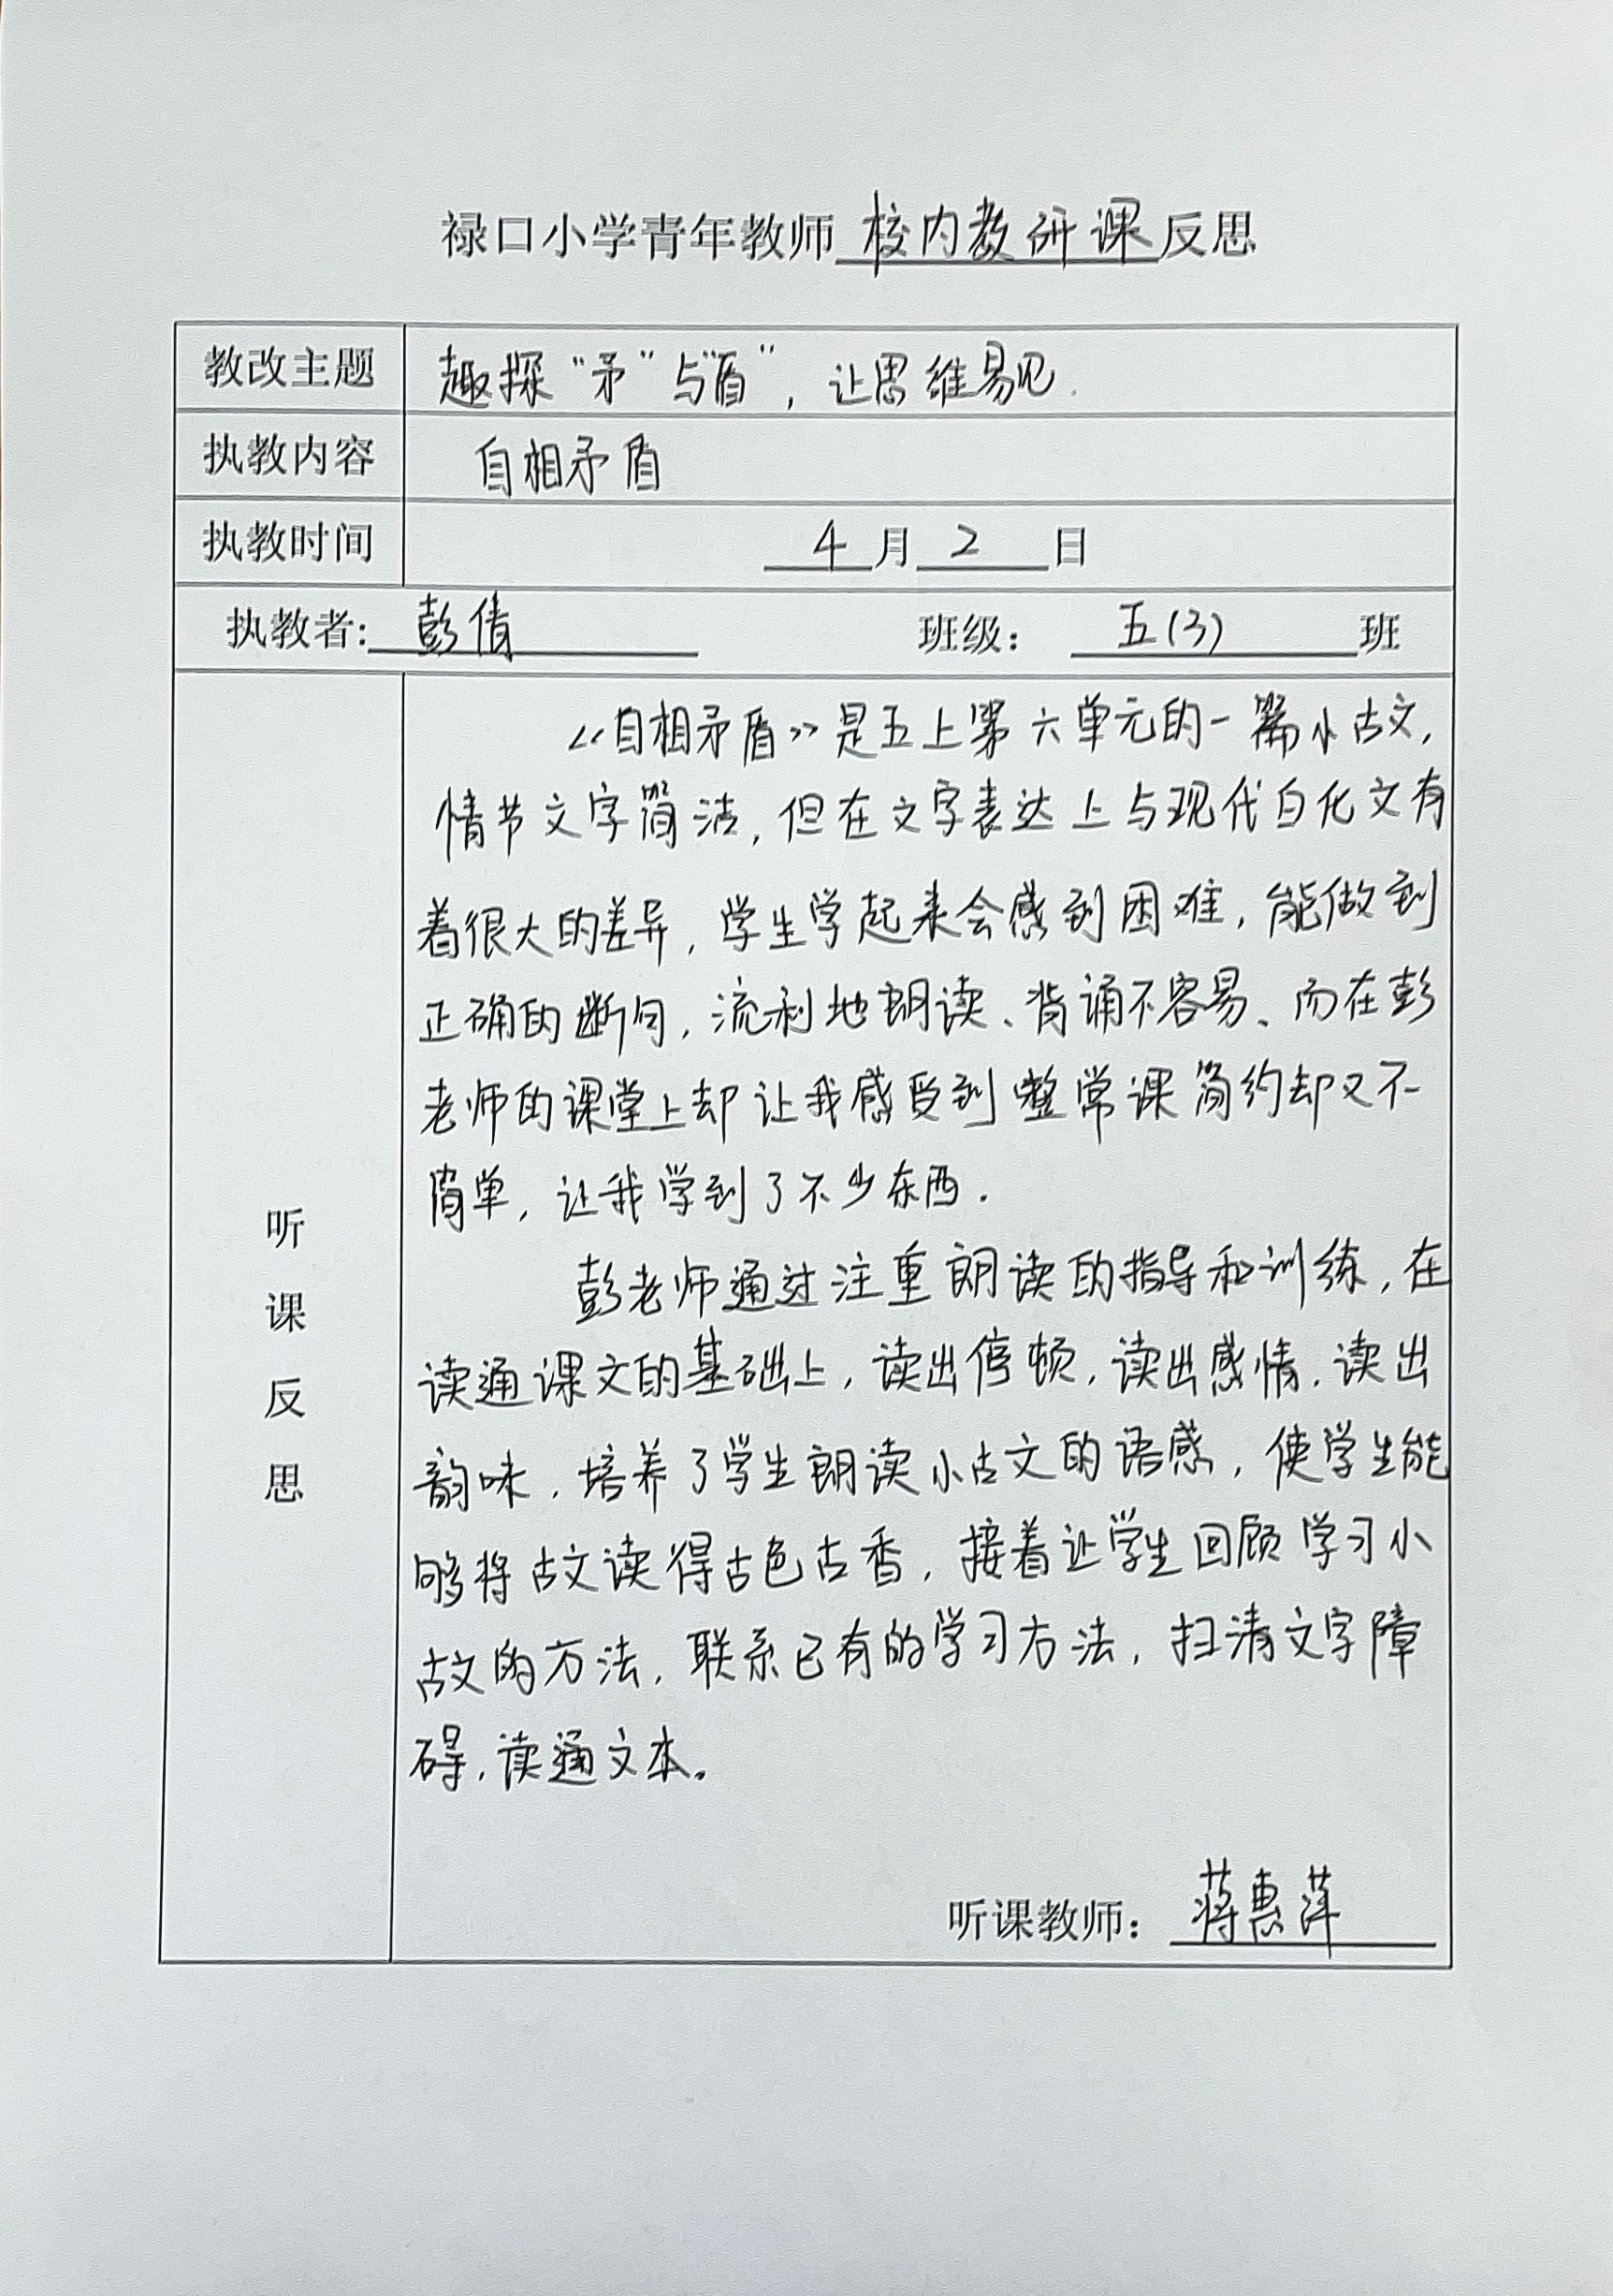 禄口小学青年教师校内教研课反思
教改主题 趣探“矛”与“盾”，让思维易见.
执教内容 自相矛盾
执教时间 4月2日
执教者：彭倩 班级：五(3)班
听课反思
《自相矛盾》是五上第六单元的一篇小古文，
情节文字简洁，但在文字表达上与现代白化文有
着很大的差异，学生学起来会感到困难，能做到
正确的断句，流利地朗读、背诵不容易、而在彭
老师的课堂上却让我感受到整常课简约却又不
简单，让我学到了不少东西.
彭老师通过注重朗读的指导和训练，在
读通课文的基础上，读出停顿，读出感情，读出
韵味，培养了学生朗读小古文的语感，使学生能
够将古文读得古色古香，接着让学生回顾学习小
古文的方法，联系已有的学习方法，扫清文字障
碍，读通文本。
听课教师：蒋惠萍